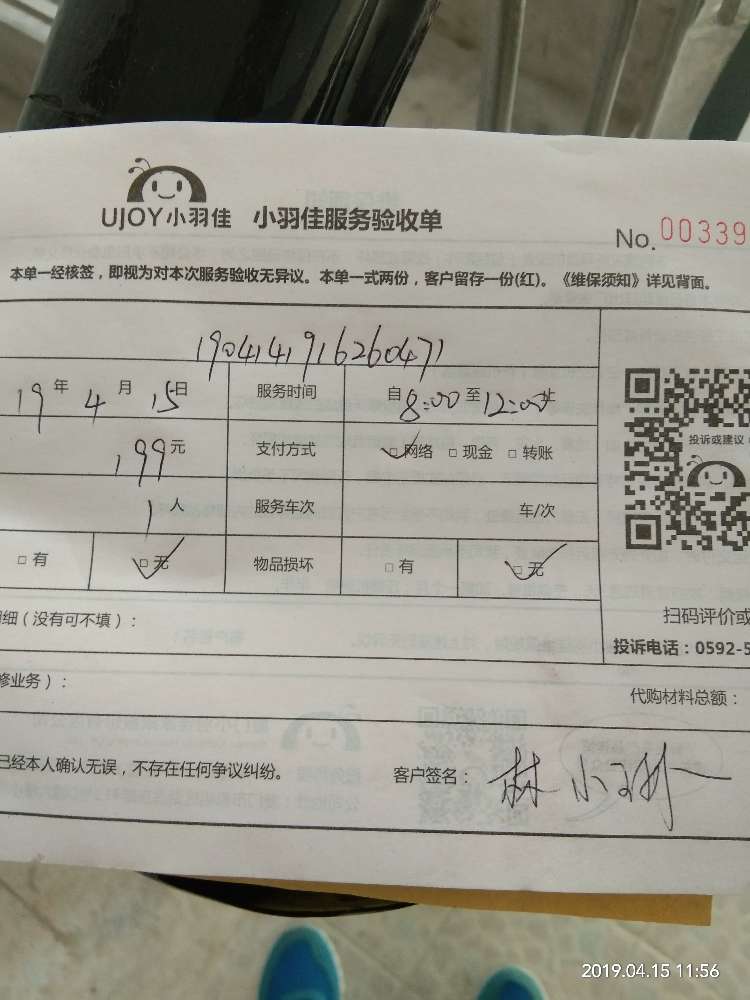 UJOY小羽佳 小羽佳服务验收单
No. 00339
本单一经核签，即视为对本次服务验收无异议。本单一式两份，客户留存一份(红)。《维保须知》详见背面。
19041491626047​1
19年4月15日 服务时间 自8:00至12:00止
199元 支付方式 网络 □现金 □转账
投诉或建议
1人 服务车次 车/次
□有 □无 物品损坏 □有 □无
细（没有可不填）：
扫码评价或
投诉电话：0592-5
修业务）：
代购材料总额：
已经本人确认无误，不存在任何争议纠纷。 客户签名：林小琳
2019.04.15 11:56